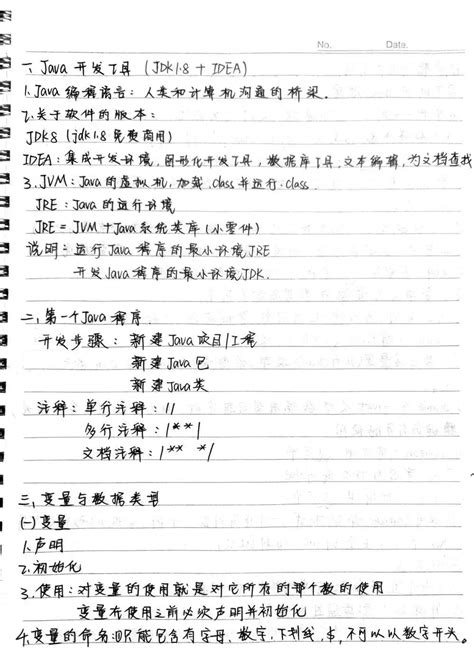 No. Date.
一、Java 开发工具 (JDK1.8 + IDEA)
1. Java 编程语言：人类和计算机沟通的桥梁.
2. 关于软件的版本：
JDK8 (jdk1.8 免费商用)
IDEA：集成开发环境, 图形化开发工具, 数据库工具, 文本编辑, 为文档查找
3. JVM：Java的虚拟机, 加载.class并运行.class.
JRE：Java的运行环境
JRE = JVM + Java系统类库 (小零件)
说明：运行 Java 程序的最小环境JRE
开发 Java 程序的最小环境JDK.
二、第一个Java 程序.
开发步骤：新建 Java 项目/工程
新建 Java包
新建 Java类
注释：单行注释：//
多行注释：/**/
文档注释：/** */
三、变量与数据类型
(一) 变量
1. 声明
2. 初始化
3. 使用：对变量的使用就是对它所存的那个数的使用
变量在使用之前必须声明并初始化
4. 变量的命名：只能包含有字母、数字、下划线、$, 不可以以数字开头。